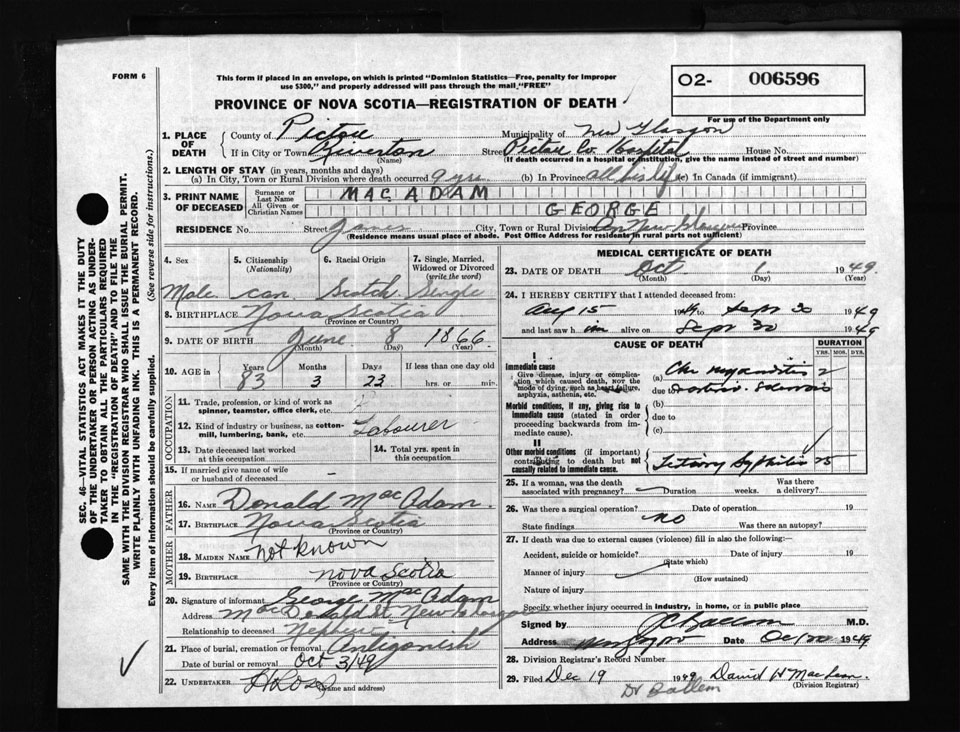 FORM 6
This form if placed in an envelope, on which is printed "Dominion Statistics—Free, penalty for improper
use $300," and properly addressed will pass through the mail "FREE"
O2- 006596
For use of the Department only
PROVINCE OF NOVA SCOTIA—REGISTRATION OF DEATH
1. PLACE OF DEATH County of Pictou Municipality of New Glasgow
If in City or Town Riverton (Name) Street Pictou Co. Hospital House No.
(If death occurred in a hospital or institution, give the name instead of street and number)
2. LENGTH OF STAY (in years, months and days)
(a) In City, Town or Rural Division where death occurred 9 yrs. (b) In Province all his life (c) In Canada (if immigrant)
3. PRINT NAME OF DECEASED Surname or Last Name MAC ADAM
All Given or Christian Names GEORGE
RESIDENCE No. Street James City, Town or Rural Division New Glasgow Province
(Residence means usual place of abode. Post Office Address for residents in rural parts not sufficient)
4. Sex 5. Citizenship (Nationality) 6. Racial Origin 7. Single, Married, Widowed or Divorced (write the word)
Male Can Scotch Single
8. BIRTHPLACE Nova Scotia
(Province or Country)
9. DATE OF BIRTH June 8 1866
(Month) (Day) (Year)
10. AGE in Years Months Days If less than one day
83 3 23 hrs. or min.
OCCUPATION
11. Trade, profession, or kind of work as spinner, teamster, office clerk, etc.
12. Kind of industry or business, as cotton-mill, lumbering, bank, etc. Labourer
13. Date deceased last worked at this occupation 14. Total yrs. spent in this occupation
15. If married give name of wife or husband of deceased –
FATHER
16. NAME Donald Mac Adam.
17. BIRTHPLACE Nova Scotia
(Province or Country)
MOTHER
18. MAIDEN NAME not known
19. BIRTHPLACE nova Scotia
(Province or Country)
20. Signature of informant George Mac Adam
Address MacDonald St. New Glasgow
Relationship to deceased Nephew
21. Place of burial, cremation or removal Antigonish
Date of burial or removal Oct 3/49
22. UNDERTAKER H Ross
(Name and address)
MEDICAL CERTIFICATE OF DEATH
23. DATE OF DEATH Oct 1. 1949.
(Month) (Day) (Year)
24. I HEREBY CERTIFY that I attended deceased from:
Aug 15 1949 to Sept 30 1949
and last saw him alive on Sept 30 1949
CAUSE OF DEATH DURATION
YRS. MOS. DYS.
I
Immediate cause
Give disease, injury or complication which caused death, NOT the mode of dying, such as heart failure, asphyxia, asthenia, etc.
(a) Chr myocarditis 2
due to
Morbid conditions, if any, giving rise to immediate cause (stated in order proceeding backwards from immediate cause).
(b)
due to
(c)
II
Other morbid conditions (if important) contributing to death but not causally related to immediate cause.
Tertiary Syphilis 25
25. If a woman, was the death associated with pregnancy? Duration weeks. Was there a delivery?
26. Was there a surgical operation? no Date of operation 19
State findings Was there an autopsy?
27. If death was due to external causes (violence) fill in also the following:—
Accident, suicide or homicide? Date of injury 19
(State which)
Manner of injury
(How sustained)
Nature of injury
Specify whether injury occurred in industry, in home, or in public place
Signed by JC Ballem M.D.
Address Date 1949
28. Division Registrar's Record Number
29. Filed Dec 19 1949 David H MacLean.
(Division Registrar)
Dr Ballem
SEC. 46—VITAL STATISTICS ACT MAKES IT THE DUTY
OF THE UNDERTAKER OR PERSON ACTING AS UNDER-
TAKER TO OBTAIN ALL THE PARTICULARS REQUIRED
IN THE "REGISTRATION OF DEATH" AND TO FILE THE
SAME WITH THE DIVISION REGISTRAR WHO SHALL ISSUE THE BURIAL PERMIT.
WRITE PLAINLY WITH UNFADING INK. THIS IS A PERMANENT RECORD.
Every item of information should be carefully supplied. (See reverse side for instructions.)